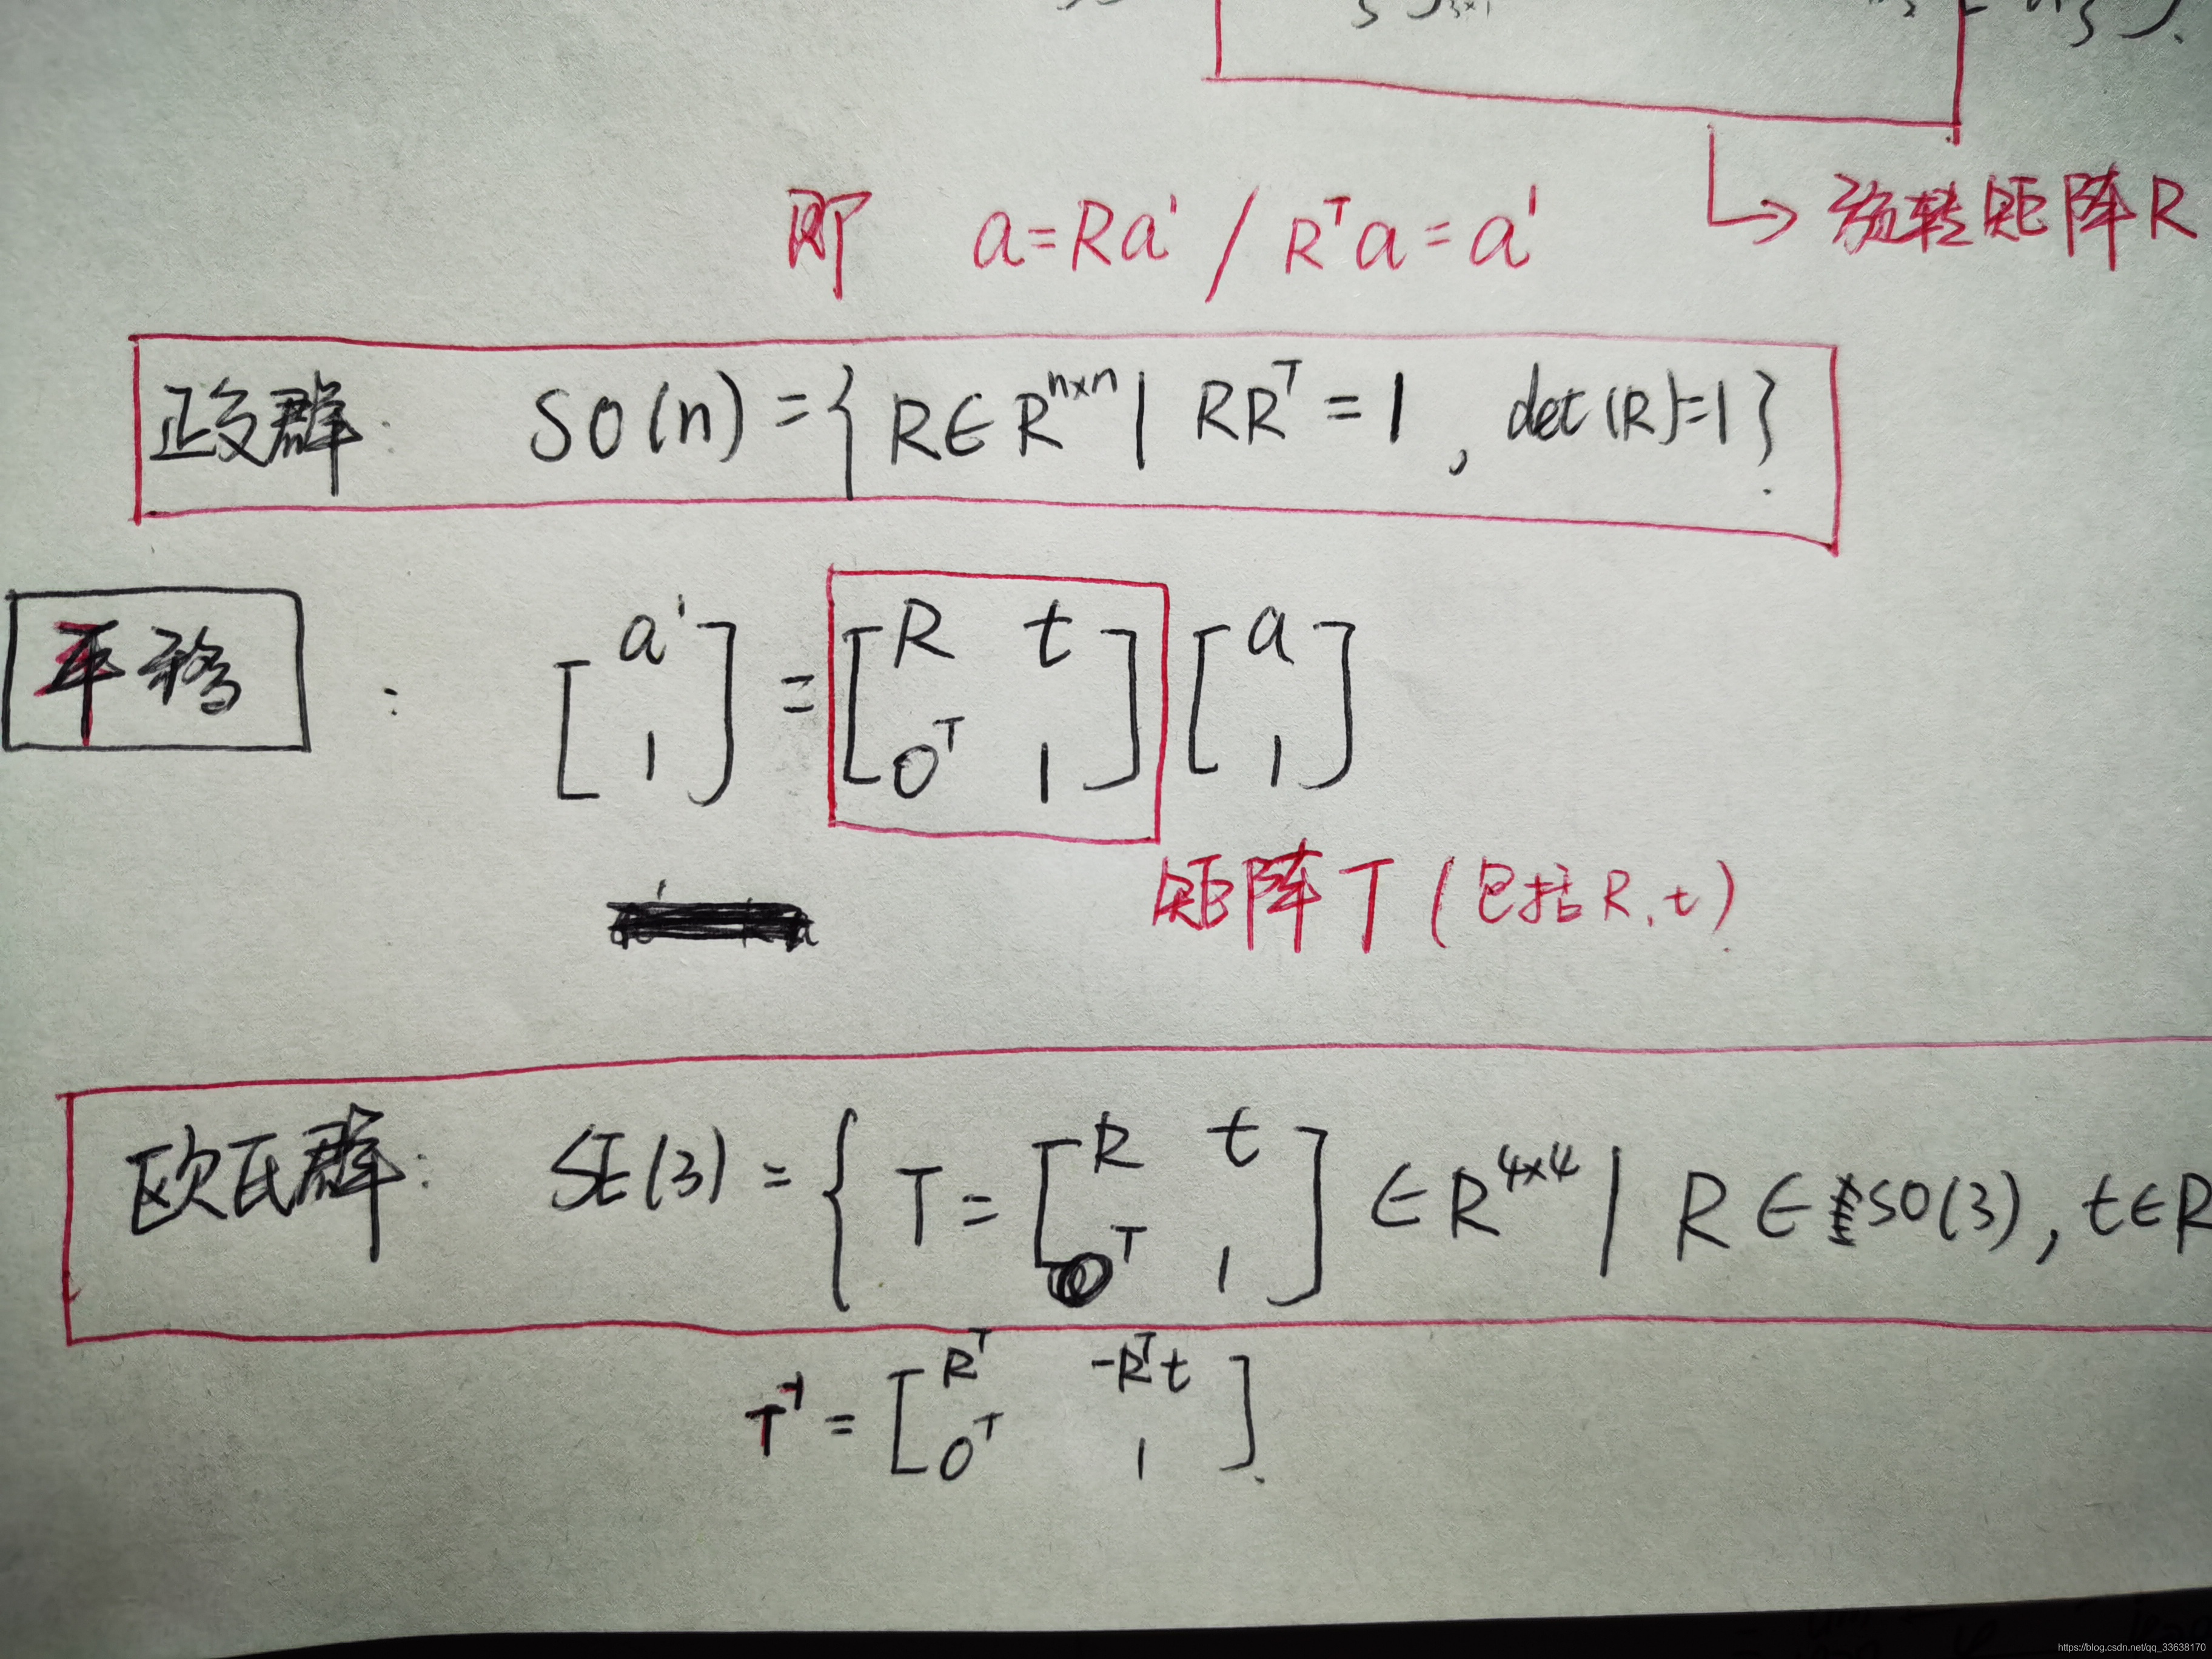 3 ]3×1
旋转矩阵R
即 a=Ra' / Rᵀa=a'
正交群: SO(n)={R∈Rⁿˣⁿ| RRᵀ=1, det(R)=1}.
平移 : [a' 1] = [R t 0ᵀ 1] [a 1]
矩阵T (包括R,t).
欧氏群: SE(3)={T=[R t 0ᵀ 1]∈R⁴ˣ⁴| R∈SO(3), t∈R
T⁻¹=[Rᵀ -Rᵀt 0ᵀ 1].
https://blog.csdn.net/qq_33638170